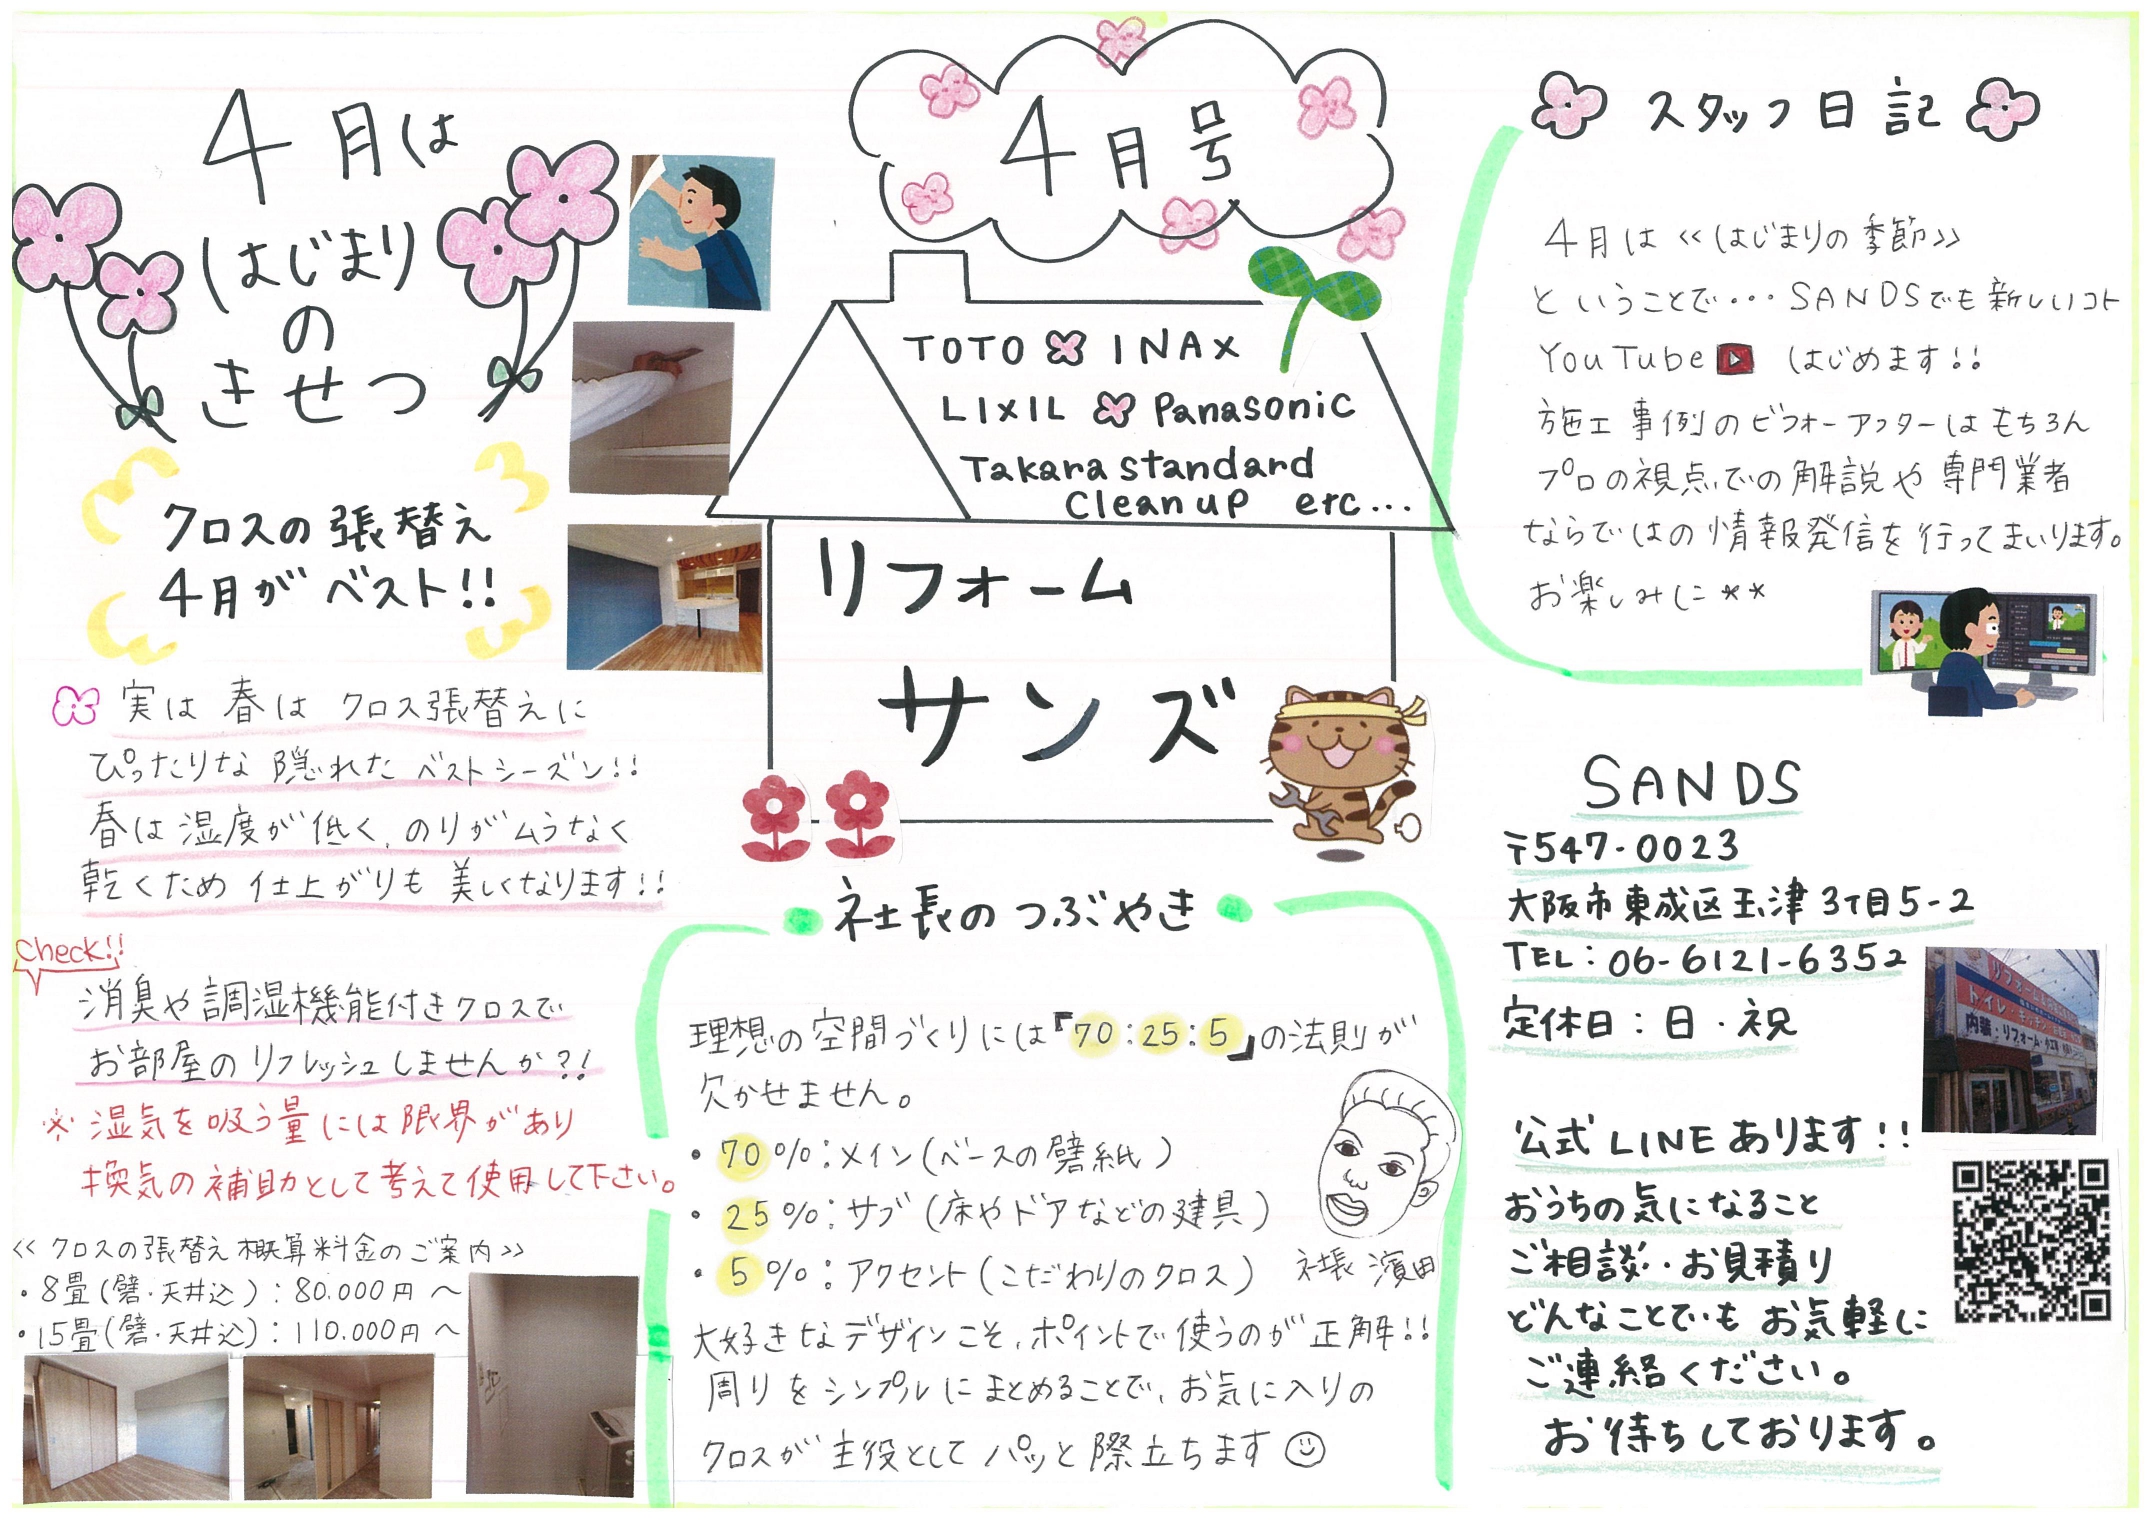 4月は
はじまり
の
きせつ
クロスの張替え
4月がベスト!!
実は春はクロス張替えに
ぴったりな隠れたベストシーズン!!
春は湿度が低く、のりがムラなく
乾くため仕上がりも美しくなります!!
Check!!
消臭や調湿機能付きクロスで
お部屋のリフレッシュしませんか?!
※湿気を吸う量には限界があり
換気の補助として考えて使用して下さい。
≪クロスの張替え概算料金のご案内≫
・8畳(壁・天井込):80.000円〜
・15畳(壁・天井込):110.000円〜
4月号
TOTO INAX
LIXIL Panasonic
Takara standard
Clean up etc...
リフォーム
サンズ
社長のつぶやき
理想の空間づくりには『70:25:5』の法則が
欠かせません。
・70%:メイン(ベースの壁紙)
・25%:サブ(床やドアなどの建具)
・5%:アクセント(こだわりのクロス)
社長 濱田
大好きなデザインこそ、ポイントで使うのが正解!!
周りをシンプルにまとめることで、お気に入りの
クロスが主役としてパッと際立ちます
スタッフ日記
4月は≪はじまりの季節≫
ということで・・・SANDSでも新しいコト
YouTube はじめます!!
施工事例のビフォーアフターはもちろん
プロの視点での解説や専門業者
ならではの情報発信を行ってまいります。
お楽しみに**
SANDS
〒547-0023
大阪市東成区玉津3丁目5-2
TEL:06-6121-6352
定休日:日・祝
リフォーム
トイレ・キッチン
内装・リフォーム・大工
公式LINEあります!!
おうちの気になること
ご相談・お見積り
どんなことでもお気軽に
ご連絡ください。
お待ちしております。